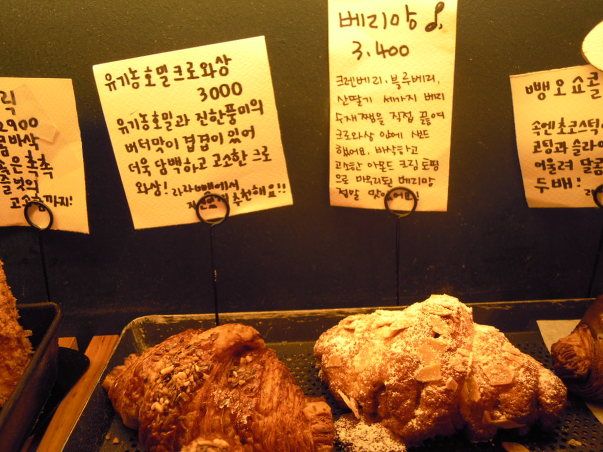 2900
바삭
촉촉
고소함까지!
유기농호밀크로와상
3000
유기농호밀과 진한풍미의
버터맛이 겹겹이 있어
더욱 담백하고 고소한 크로
와상! 라라빵에서
추천해요!!
베리망♪
3.400
크렌베리, 블루베리,
산딸기 세가지 베리
수제쨈을 직접 끓여
크로와상 안에 샌드
했어요. 바삭하고
고소한 아몬드 크림 토핑
으로 마무리된 베리망
정말 맛있어요!
빵오쇼콜
속엔초코스틱
코팅과 슬라이
어울려 달콤
두배!